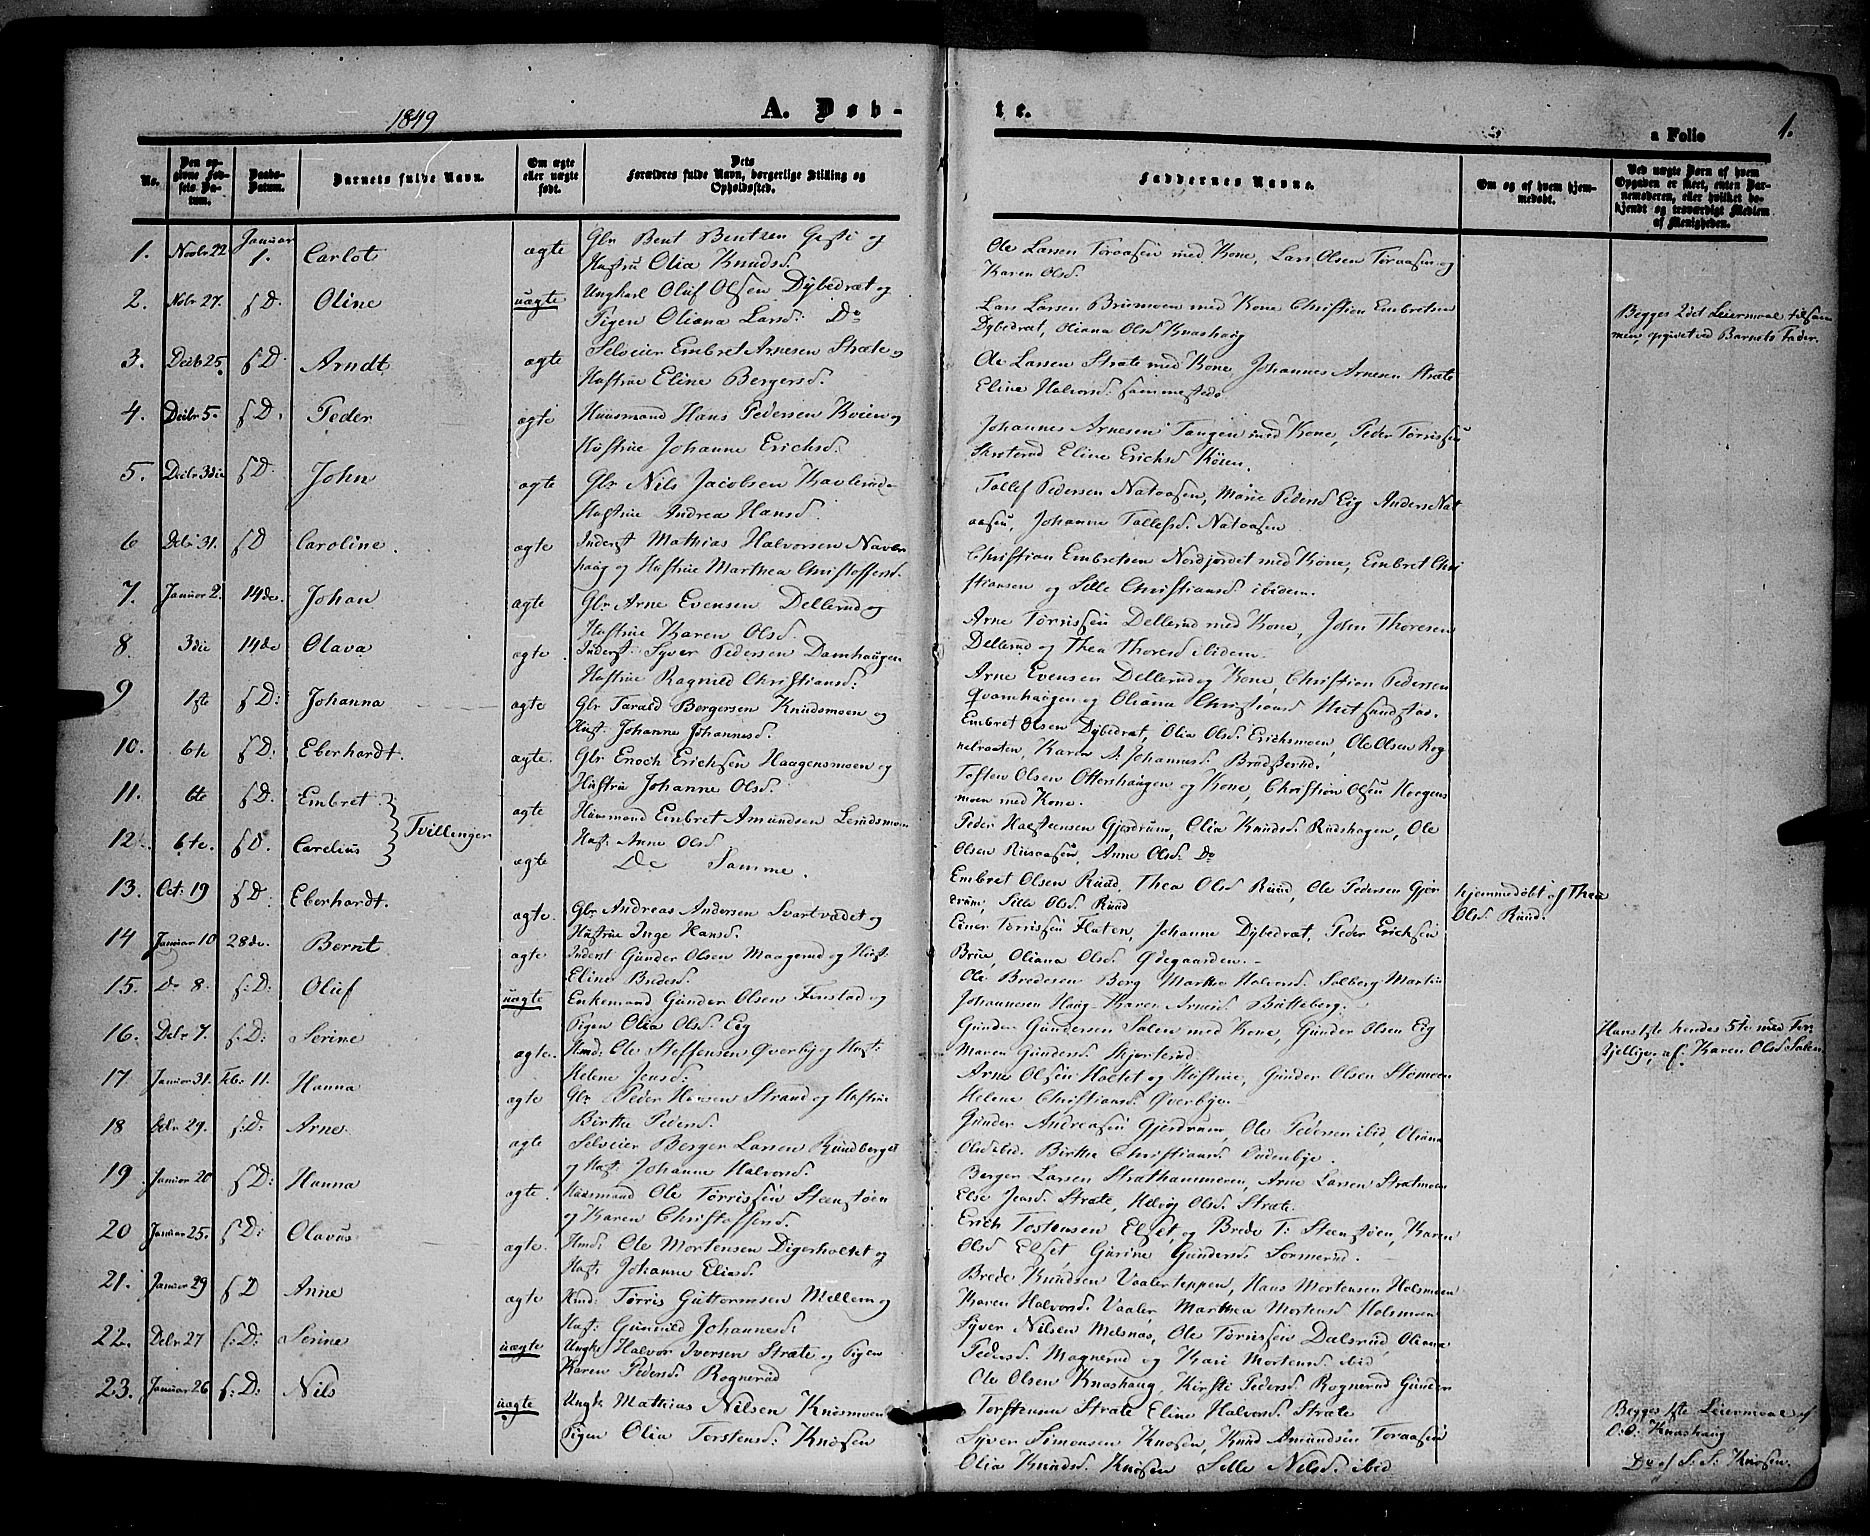 1849
A. Døb-
te.
a Folio
1.
No.
Den op-
givne Fød-
sels Da-
tum.
Daabs-
Datum.
Barnets fulde Navn.
Om ægte
eller uægte
født.
Dets
Forældres fulde Navn, borgerlige Stilling og
Opholdssted.
Faddernes Navne.
Om og af hvem hjem-
medøbt.
Ved uægte Børn af hvem
Opgaven er skeet, enten Bar-
nemoderen, eller hvilket be-
kjendt og troværdigt Medlem
af Menigheden.
1. Novbr 22 Januar 1. Carlot ægte Gbr Bent Bentsen Gesti og
Hustru Olia Knudsd.
Ole Larsen Toraasen med Kone, Lars Olsen Toraasen og
Karen Olsd.
2. Nobr 27. s D: Oline uægte Ungkarl Oluf Olsen Dybedræt og
Pigen Oliana Larsd: Do
Lars Larsen Brumoen med Kone Christian Embretsen
Dybedræt, Oliana Olsd Knashaug
Begges 2det Leiermaal tilsam
men, opgivet ved Barnets Fader.
3. Decb 25. s D: Arndt ægte Selveier Embret Arnesen Stræte og
Hustrue Eline Bergersd.
Ole Larsen Stræte med Kone, Johannes Arnesen Stræte
Eline Halvorsd. sammesteds.
4. Decbr 5. s D: Peder ægte Huusmand Hans Pedersen Kvien og
Hustrue Johanne Erichsd.
Johannes Arnesen Tangen med Kone, Peder Tørrissen
Skoterud Eline Erichsd Koien.
5. Decbr 3die s D. John ægte Gbr Nils Jacobsen Kavlerud og
Hustrue Andrea Hansd.
Tollef Pedersen Nataasen, Marie Pedersd Eig Anders Nat
aasen, Johanne Tollefsd. Nataasen
6 Debr 31. s D Caroline. ægte Inderst Mathias Halvorsen Naver
haag og Hustrue Marthea Christoffersd.
Christian Embretsen Nordjordet med Kone, Embret Chri
stiansen og Sille Christiansd. ibidem.
7. Januar 2. 14de. Johan ægte Gbr Arne Evensen Dellerud og
Hustrue Karen Olsd.
Arne Tørrissen Dellerud med Kone, John Thoresen
Dellerud og Thea Thoresd ibidem.
8 3die 14de Olava ægte. Inderst: Syver Pedersen Damhaugen
Hustrue Ragnild Christiansd:
Arne Evensen Dellerud og Kone, Christian Pedersen
Qvamhaugen og Oliana Christiansd
9 1ste s D: Johanna ægte Gbr Tarald Bergersen Knudsmoen og
Hust: Johanne Johannesd.
Embret Olsen Dybedræt, Olia Olsd. Erichsmoen, Ole Olsen Rog
nelraaten, Karen A. Johannesd. Bradserud.
10. 6te s D: Eberhardt. ægte. Gbr Enoch Erichsen Haagensmoen og
Hustru Johanne Olsd.
Tosten Olsen Ottershaugen og Kone, Christian Olsen Haagens
moen med Kone.
11. 6te s D. Embret. ægte Huusmand Embret Amundsen Lerudsmoen
Hust: Anne Olsd.
Tvillinger
Peder Halstensen Gjerdrum, Olia Knudsd. Rudshagen, Ole
Olsen Riisaasen, Anne Olsd: Do
12. 6te. s D. Carelius ægte Do Samme.
13. Oct: 19 s D: Eberhardt. ægte. Gbr Andreas Andersen Svartvadet og
Hustrue Inge Hansd.
Embret Olsen Ruud, Thea Olsd Ruud, Ole Pedersen Gjer
drum, Sille Olsd. Ruud
hjemmedøbt af Thea
Olsd. Ruud.
14 Januar 10 28de. Bernt ægte Inderst Gunder Olsen Maagerud og Hust:
Eline Bredesd.
Einer Tørrissen Flaten, Johanne Dybedræt, Peder Erichsen
Brue, Oliana Olsd. Ødegaarden.
15. Do 8. s: D: Oluf uægte Enkemand Gunder Olsen Finstad og
Pigen Olia Olsd. Eig
Ole Bredesen Berg Marthe Halvorsd. Solberg Martin
Johannesen Haug Karen Arnesd. Bulteberg.
16. Debr 7. s: D: Serine ægte. Hmd: Ole Steffensen Overby og Hust:
Helene Jensd:
Gunder Gundersen Salen med Kone, Gunder Olsen Eig
Maren Gundersd.
Hans 1ste hendes 5te med For
skjellige, af: Karen Olsd: Salen
17. Januar 31. Feb: 11. Hanna ægte Gbr Peder Hansen Strand og Hustrue
Birthe Pedersd.
Arne Olsen Holtet og Hustrue, Gunder Olsen
Helene Christiansd. Overbye.
18 Debr 29. s: D: Arne. ægte Selveier Berger Larsen Rundberget
og Hust: Johanne Halvorsd.
Gunder Andreasen Gjerdrum, Ole Pedersen ibid Oliana
Olsd ibid. Birthe Christiansd.
19. Januar 20 s D: Hanna ægte. Huusmand Ole Tørrissen Steenstøen
og Karen Christoffersd.
Berger Larsen Stræthammeren, Arne Larsen Strætmoen
Else Jensd. Stræte, Helvig Olsd. Stræte.
20 Januar 25. s D: Olavus ægte. Hmd: Ole Mortensen Digerholtet og
Hust: Johanne Eliasd.
Erich Tostensen Elset, og Brede T: Steenstøen, Karen
Olsd Elset, Gurine Gundersd. Sormerud.
21. Januar 29 s D Anne ægte Hmd: Tørris Guttormsen Mellem og
Hust: Gunnild Johannesd.
Brede Knudsen Vaalerteppen, Hans Mortensen Holsmoen
Karen Halvorsd. Vaaler, Marthea Mortensd. Holsmoen
22. Debr 27 s: D: Serine uægte Ungk: Halvor Iversen Stræte og Pigen
Karen Pedersd. Rognerud
Syver Nilsen Melsnæs, Ole Tørrissen Dalsrud, Oliana
Pedersd. Magnerud og Kari Mortensd. ibid
Ole Olsen Knashaug, Kirsti Pedersd. Rognerud Gunder
Torstensen Stræte Eline Halvorsd. Stræte
Begges 1ste Leiermaal af
O. O. Knashaug
23. Januar 26 s: D: Nils uægte Ungk: Mathias Nilsen Knosmoen
Pigen Olia Torstensd: Knosen
Syver Simonsen Knosen, Knud Amundsen Toraasen
Olia Knudsd. Knosen Sille Nilsd. ibid
Do af S. S: Knosen.